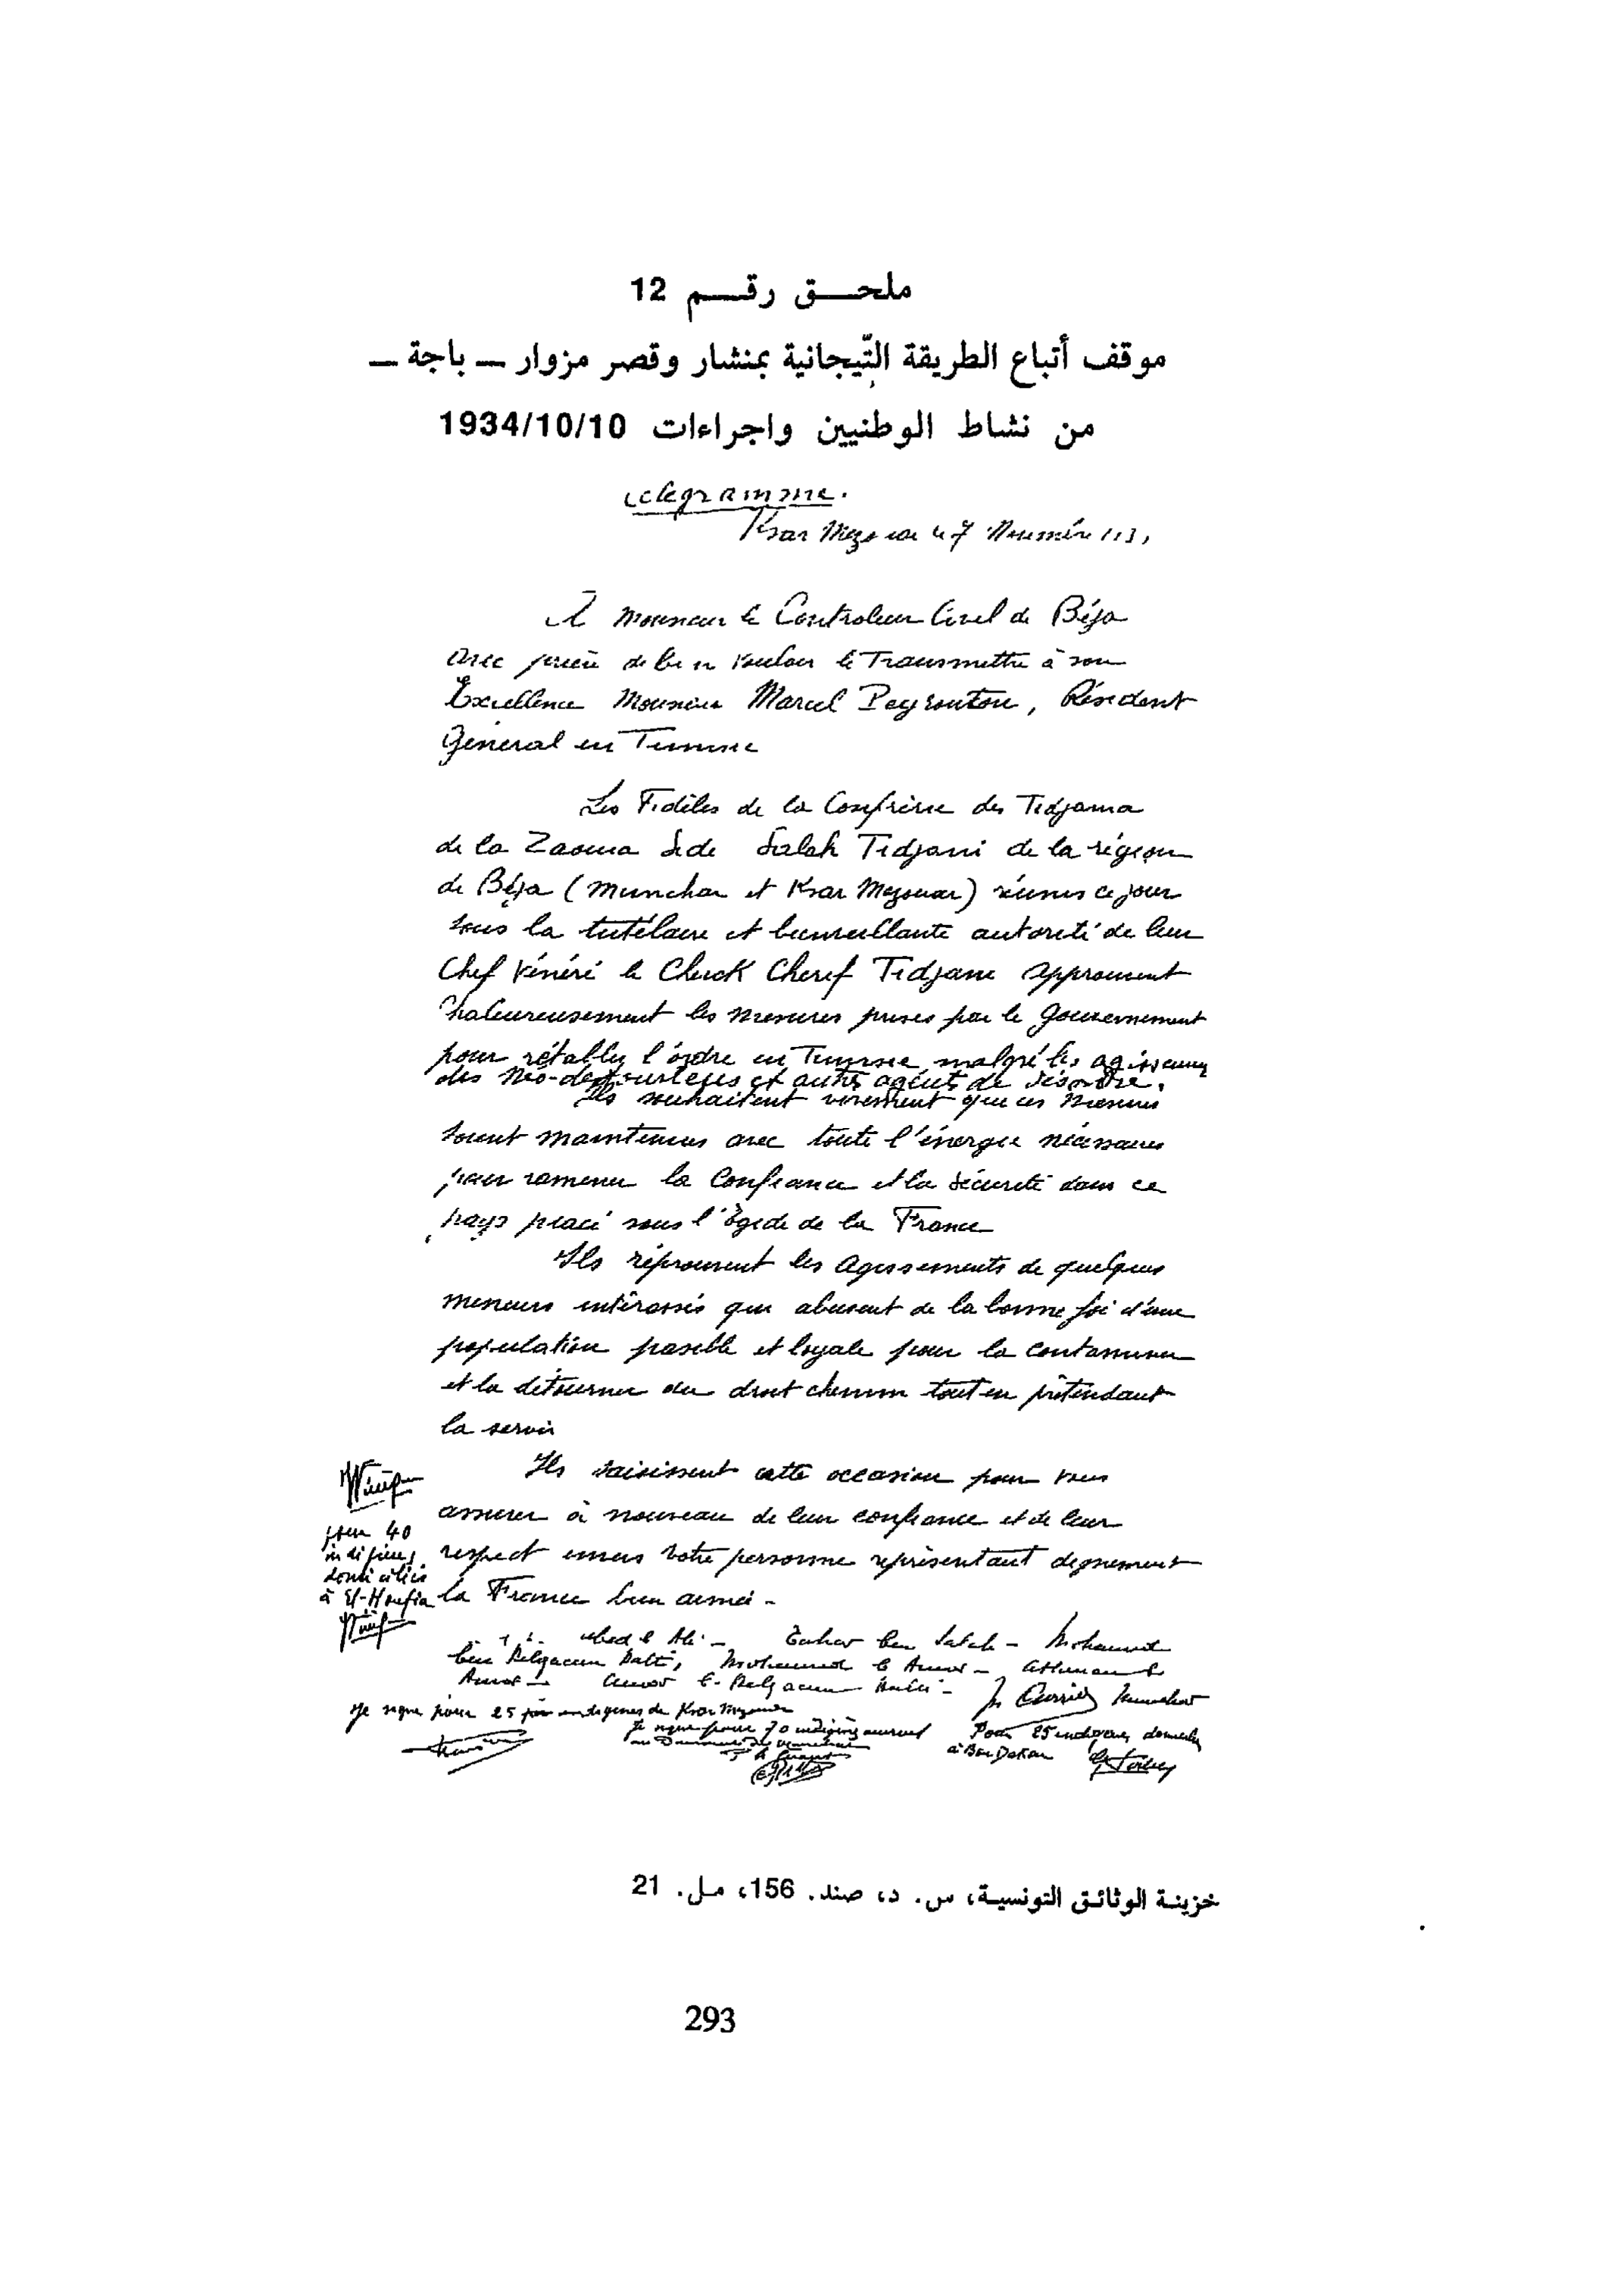 ملحق رقم 12
موقف أتباع الطريقة التّيجانية بمنشار وقصر مزوار — باجة —
من نشاط الوطنيين واجراءات 1934/10/10
telegramme.
Ksar Mezouar le 7 Novembre
A Monsieur le Controleur Civil de Béja
avec prière de bien vouloir le Transmettre à son
Excellence Monsieur Marcel Peyrouton, Résident
Général en Tunisie
Les Fidèles de la Confrérie des Tidjania
de la Zaouia Sidi Salah Tidjani de la région
de Béja (Munchar et Ksar Mezouar) réunis ce jour
sous la tutélaire et bienveillante autorité de leur
Chef Vénéré le Cheick Cherif Tidjani approuvent
Chaleureusement les mesures prises par le Gouvernement
pour rétablir l'ordre en Tunisie malgré les agissements
des Néo-destouriens et autres agents de désordre.
Ils souhaitent vivement que ces mesures
soient maintenues avec toute l'énergie nécessaire
pour ramener la Confiance et la sécurité dans ce
pays placé sous l'Egide de la France
Ils réprouvent les Agissements de quelques
meneurs intéressés qui abusent de la bonne foi d'une
population paisible et loyale pour la contaminer
et la détourner du droit chemin tout en prétendant
la servir
Ils saisissent cette occasion pour vous
assurer à nouveau de leur confiance et de leur
respect envers votre personne représentant dignement
la France bien aimée -
pour 40
indigènes
domiciliés
à El-Houfia
Ali - Tahar ben Salah - Mohamed
ben Belgacem Balti, Mohamed b Amor - Athman b
Amor - Amor b. Belgacem
Je signe pour 25 indigènes de Ksar Mezouar
Je signe pour 70 indigènes
Pour 25 indigènes domiciliés
à Bou
خزينة الوثائق التونسية، س. د، صند. 156، مل. 21
293